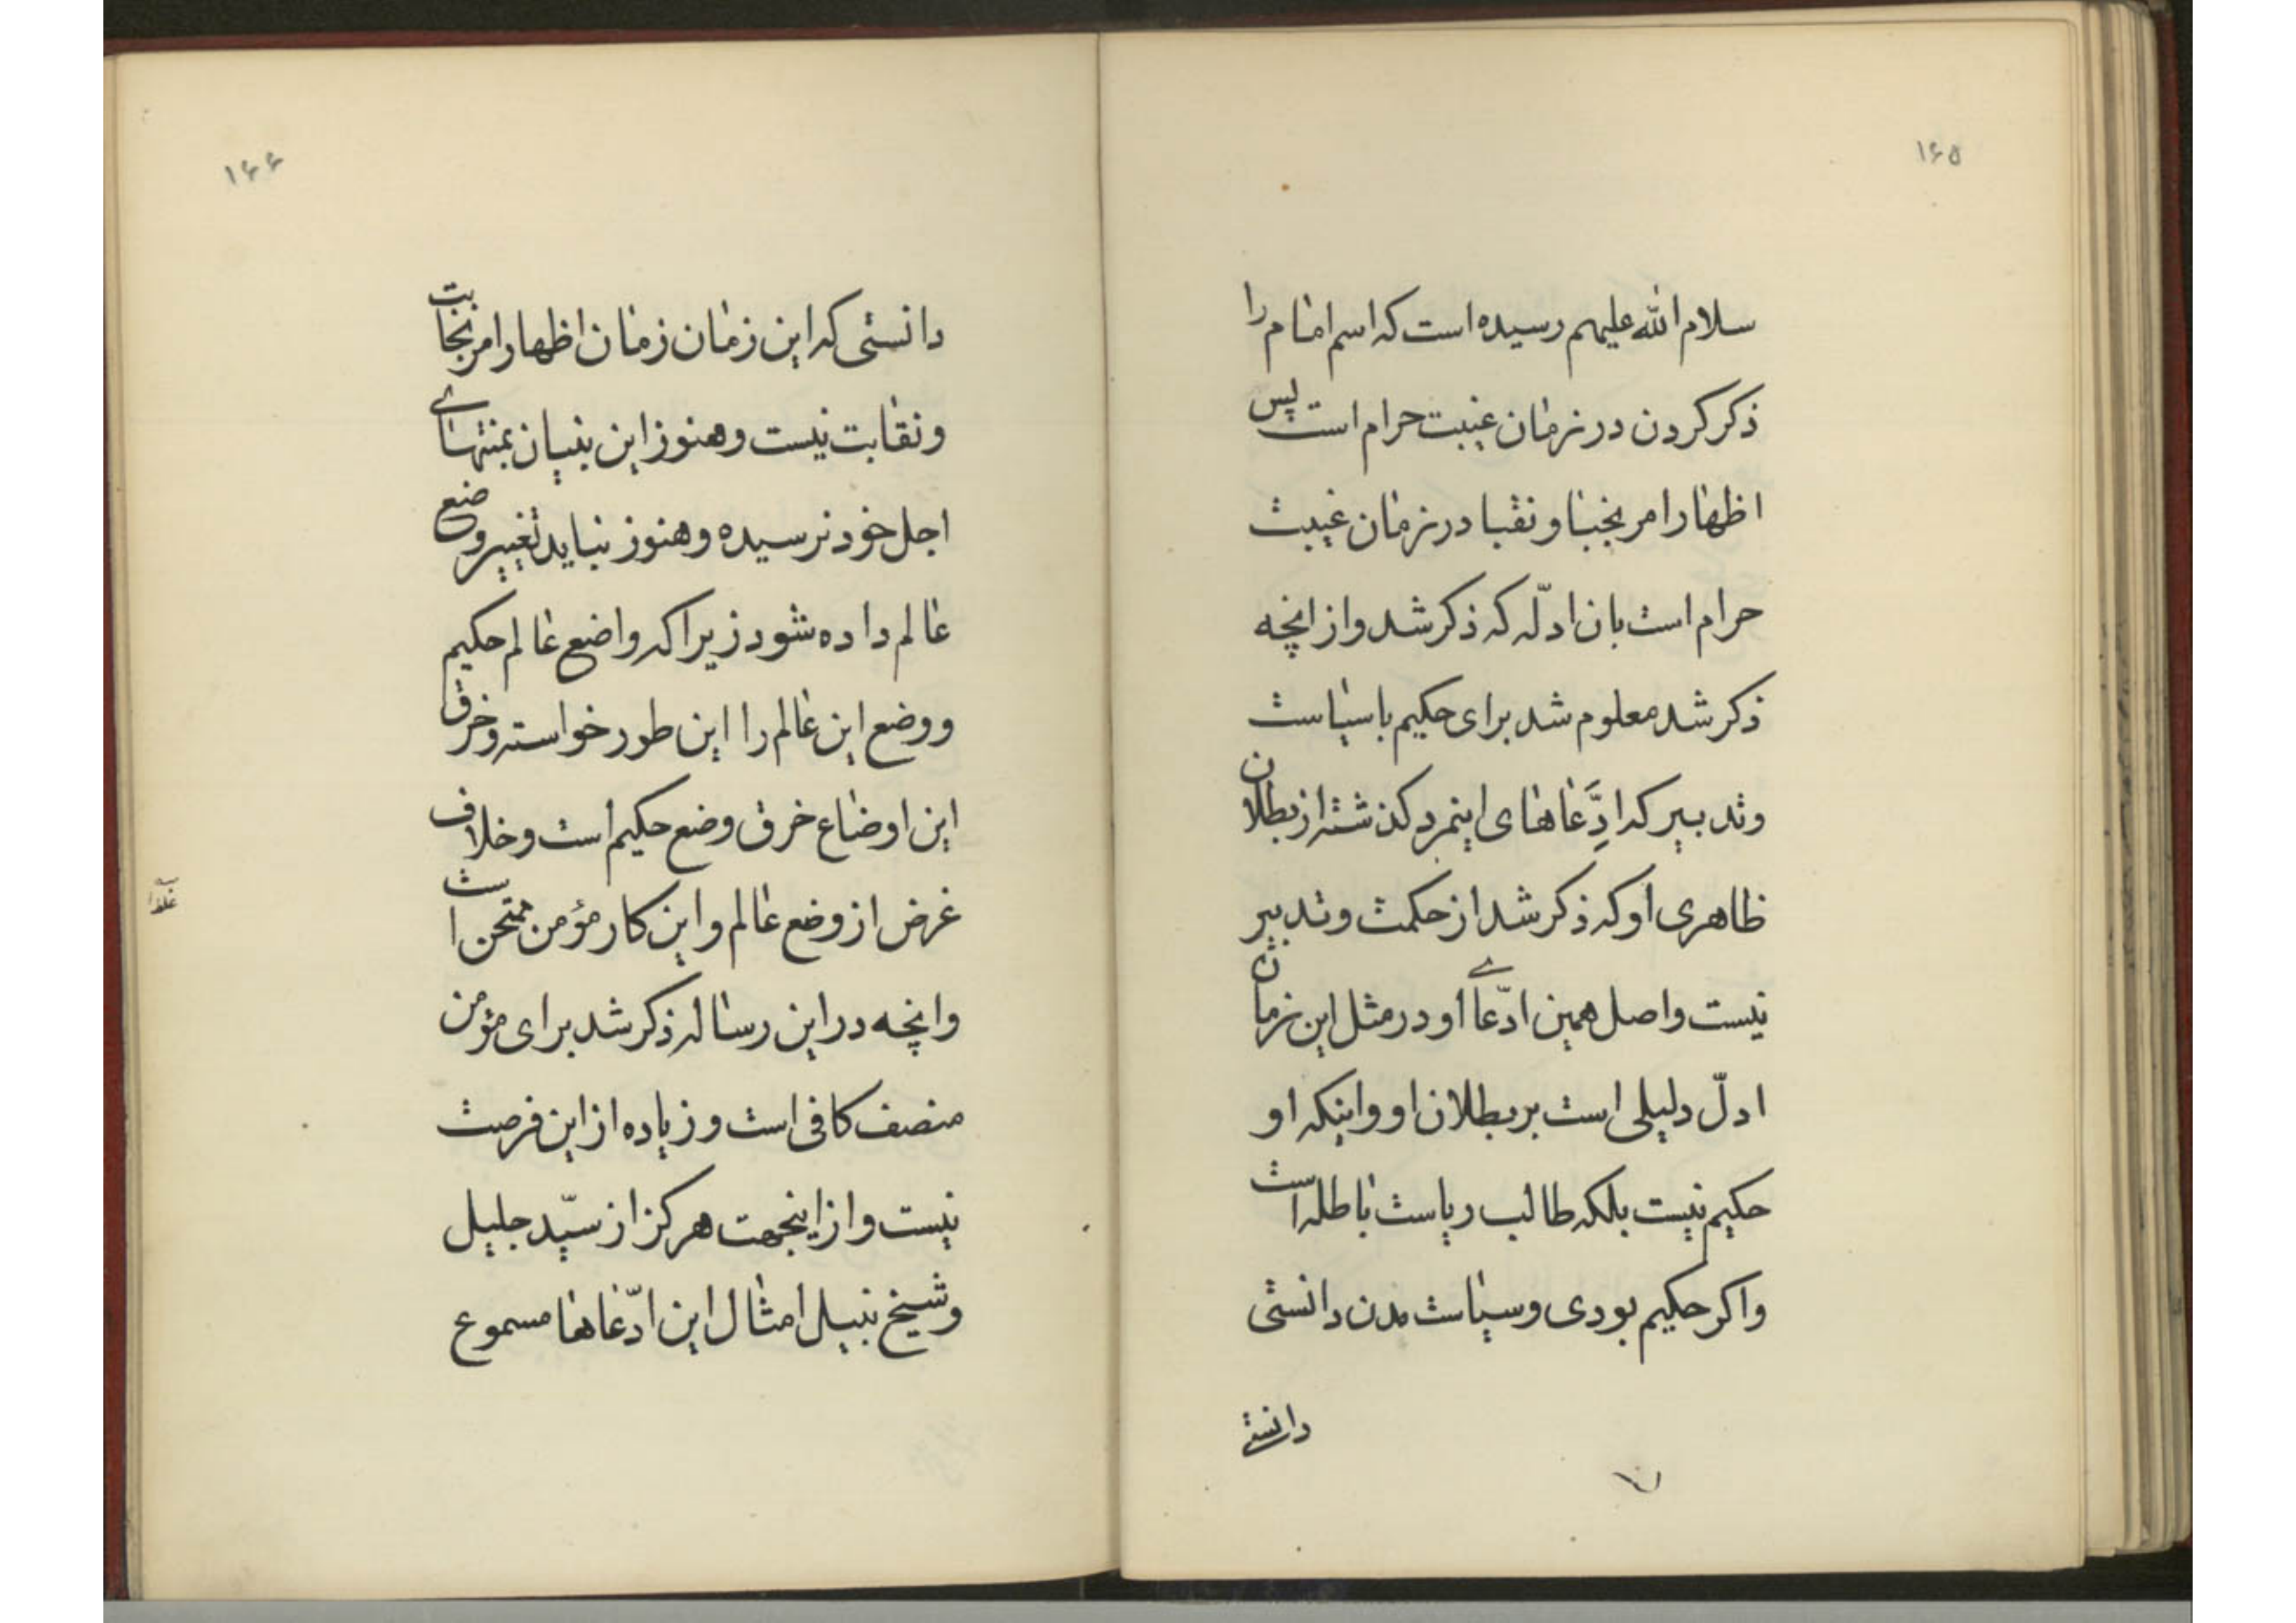 ۱۶۵
سلام الله علیهم رسیده است که اسم امام را
ذکر کردن در زمان غیبت حرام است پس
اظهار امر نجبا و نقبا در زمان غیبت
حرام است بان ادلّه که ذکر شد و از انچه
ذکر شد معلوم شد برای حکیم با سیاست
و تدبیر که ادِّعاهای اینمرد کذشته از بطلان
ظاهری او که ذکر شد از حکمت و تدبیر
نیست و اصل همین ادّعای او در مثل این زمان
ادلّ دلیلی است بر بطلان او و اینکه او
حکیم نیست بلکه طالب ریاست باطله است
و اکر حکیم بودی و سیاست مدن دانستی
دانستی
۱۶۶
دانستی که این زمان زمان اظهار امر نجابت
و نقابت نیست و هنوز این بنیان بمنتهای
اجل خود نرسیده و هنوز نباید تغییر وضع
عالم داده شود زیرا که واضع عالم حکیم
و وضع این عالم را این طور خواسته و خرق
این اوضاع خرق وضع حکیم است و خلاف
غرض از وضع عالم و این کار مؤمن ممتحن است
و انچه در این رساله ذکر شد برای مؤمن
منصف کافی است و زیاده از این فرصت
نیست و از اینجهت هرکز از سیّد جلیل
و شیخ نبیل امثال این ادّعاها مسموع